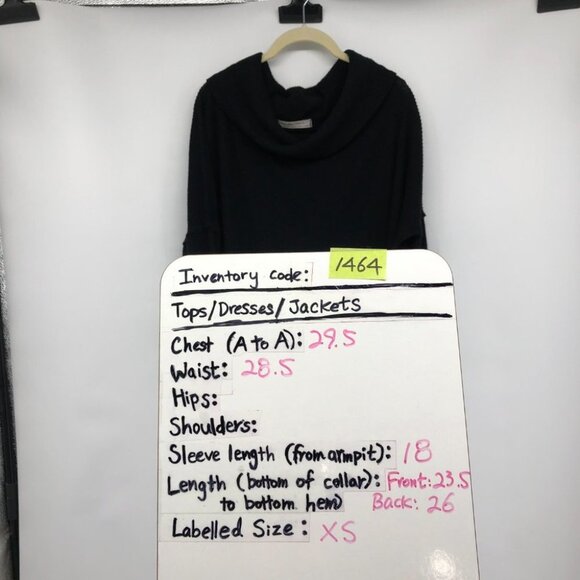 Inventory code: 1464
Tops/Dresses/Jackets
Chest (A to A): 29.5
Waist: 28.5
Hips:
Shoulders:
Sleeve length (from armpit): 18
Length (bottom of collar): Front: 23.5
to bottom hem) Back: 26
Labelled Size: XS